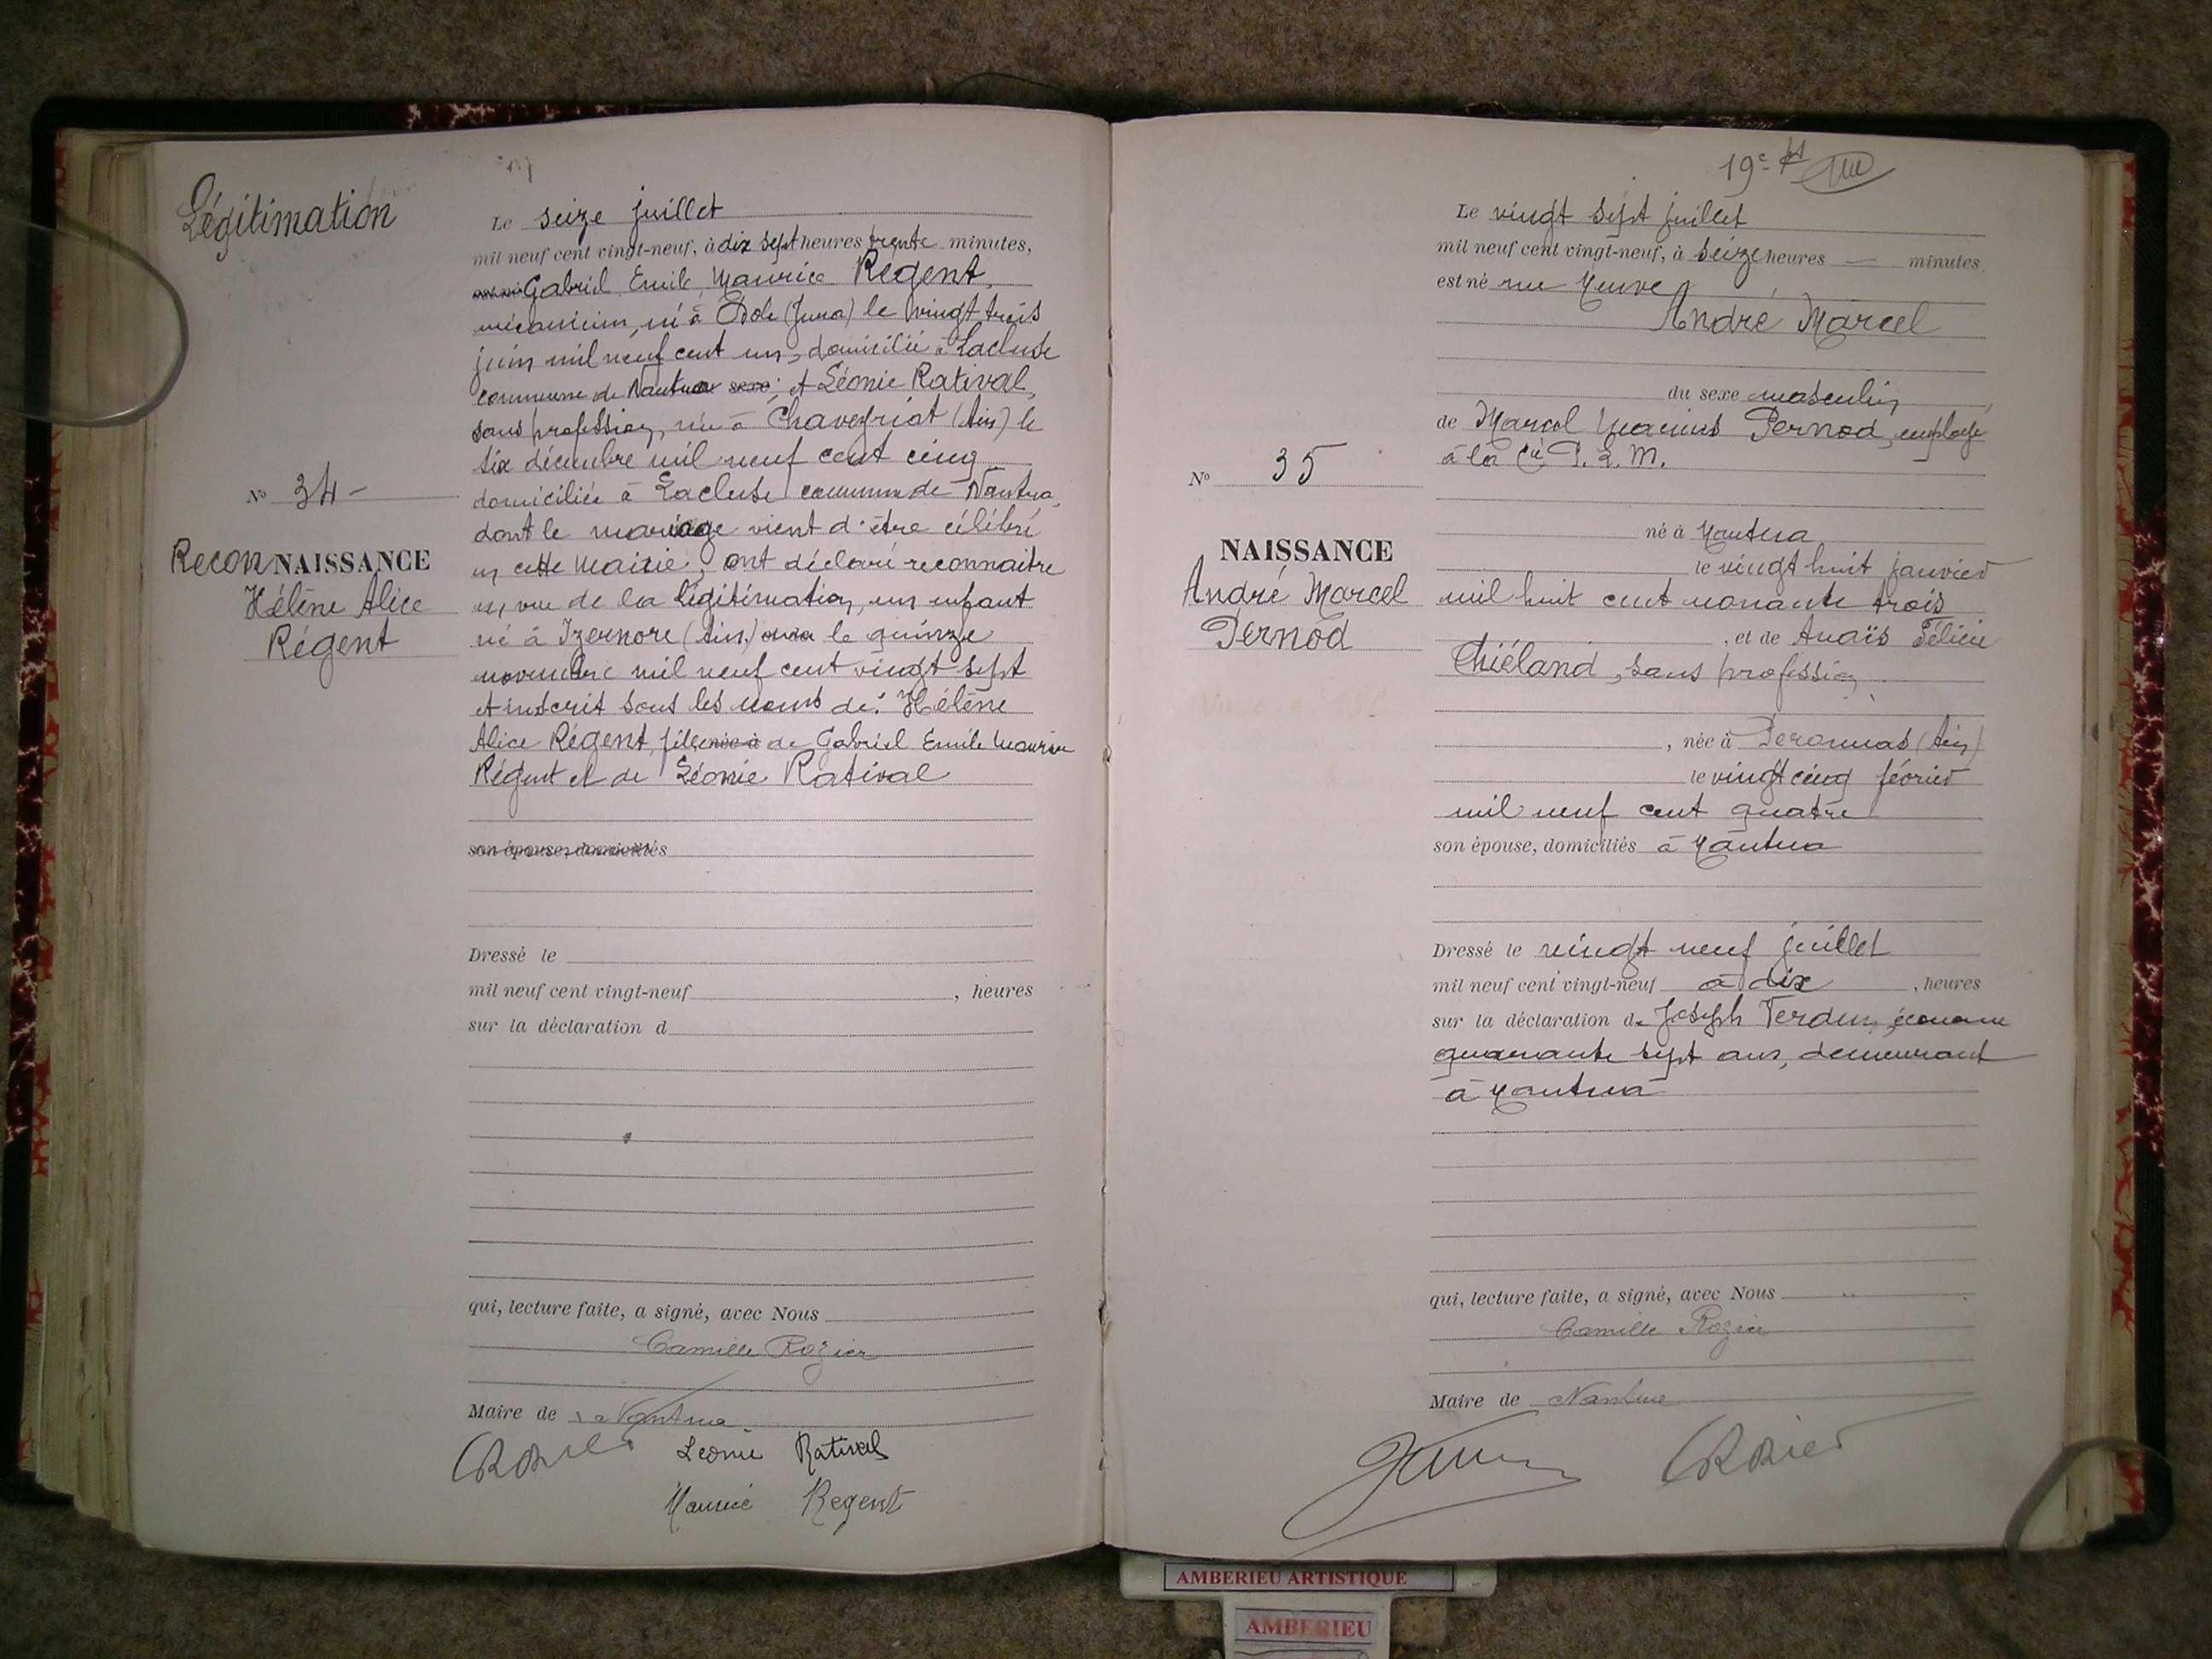 Légitimation
N° 34 -
ReconNAISSANCE
Hélène Alice
Régent
Le seize juillet
mil neuf cent vingt-neuf, à dix sept heures trente minutes,
Gabriel, Emile, Maurice Régent,
mécanicien, né à Dole (Jura) le vingt trois
juin mil neuf cent un, domicilié à Lacluse
commune de Nantua sexe; et Léonie Ratival,
sans profession, née à Chaveyriat (Ain) le
six décembre mil neuf cent cinq
domiciliée à Lacluse commune de Nantua,
dont le mariage vient d'être célébré
en cette Mairie, ont déclaré reconnaitre
en vue de la légitimation, un enfant
né à Izernore (Ain) le quinze
novembre mil neuf cent vingt sept
et inscrit sous les noms de: Hélène
Alice Régent, fille née à de Gabriel Emile Maurice
Régent et de Léonie Ratival
son épouse, domiciliés
Dressé le
mil neuf cent vingt-neuf , heures
sur la déclaration d
qui, lecture faite, a signé, avec Nous
Camille Rozier
Maire de Nantua
CRozier Leonie Ratival
Maurice Regent
19e
N° 35
NAISSANCE
André Marcel
Pernod
Le vingt sept juillet
mil neuf cent vingt-neuf, à seize heures — minutes,
est né rue Neuve
André Marcel
du sexe masculin
de Marcel Marius Pernod, employé
à la Cie P. L. M.
né à Nantua
le vingt huit janvier
mil huit cent nonante trois
, et de Anaïs Félicie
Chiéland, sans profession
, née à Peronnas (Ain)
le vingt cinq février
mil neuf cent quatre
son épouse, domiciliés à Nantua
Dressé le vingt neuf juillet
mil neuf cent vingt-neuf à dix , heures
sur la déclaration de Joseph Verdun, économe
quarante sept ans, demeurant
à Nantua
qui, lecture faite, a signé, avec Nous
Camille Rozier
Maire de Nantua
CRozier
AMBERIEU ARTISTIQUE
AMBERIEU